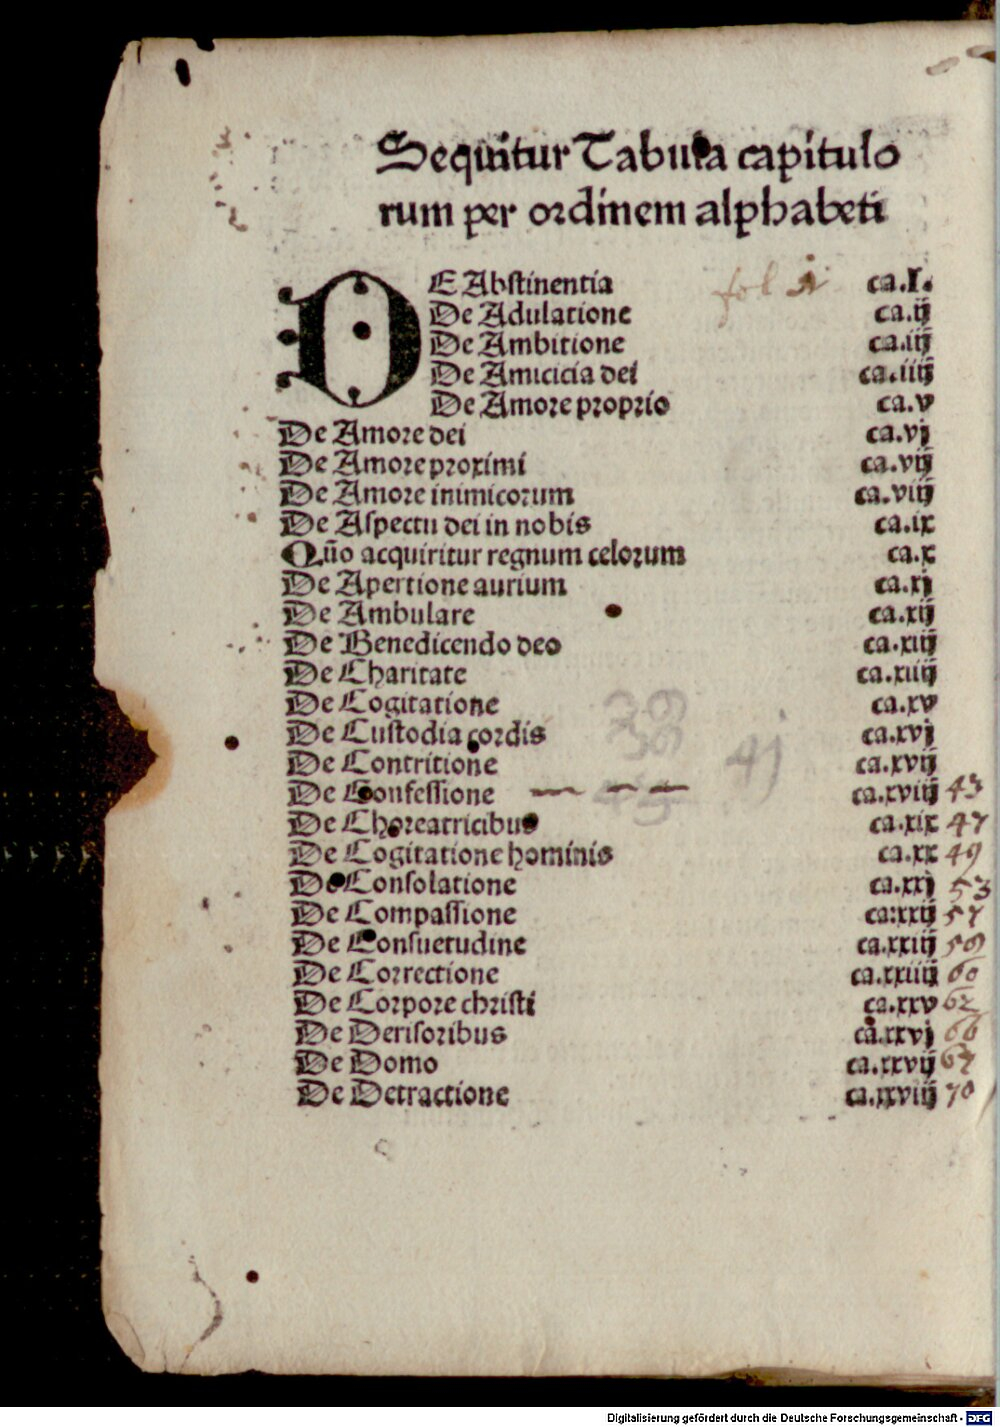 Sequitur Tabula capitulo
rum per ordinem alphabeti
DE Abstinentia fol 1 ca.I.
De Adulatione ca.ij
De Ambitione ca.iij
De Amicicia dei ca.iiij
De Amore proprio ca.v
De Amore dei ca.vj
De Amore proximi ca.vij
De Amore inimicorum ca.viij
De Aspectu dei in nobis ca.ix
Qūo acquiritur regnum celorum ca.x
De Apertione aurium ca.xj
De Ambulare ca.xij
De Benedicendo deo ca.xiij
De Charitate ca.xiiij
De Cogitatione ca.xv
38
De Custodia cordis ca.xvj
41
De Contritione ca.xvij
De Confessione 45 ca.xviij 43
De Choreatricibus ca.xix 47
De Cogitatione hominis ca.xx 49
De Consolatione ca.xxj 53
De Compassione ca.xxij 57
De Consuetudine ca.xxiij 59
De Correctione ca.xxiiij 60
De Corpore christi ca.xxv 62
De Derisoribus ca.xxvj 66
De Domo ca.xxvij 67
De Detractione ca.xxviij 70
Digitalisierung gefördert durch die Deutsche Forschungsgemeinschaft - DFG